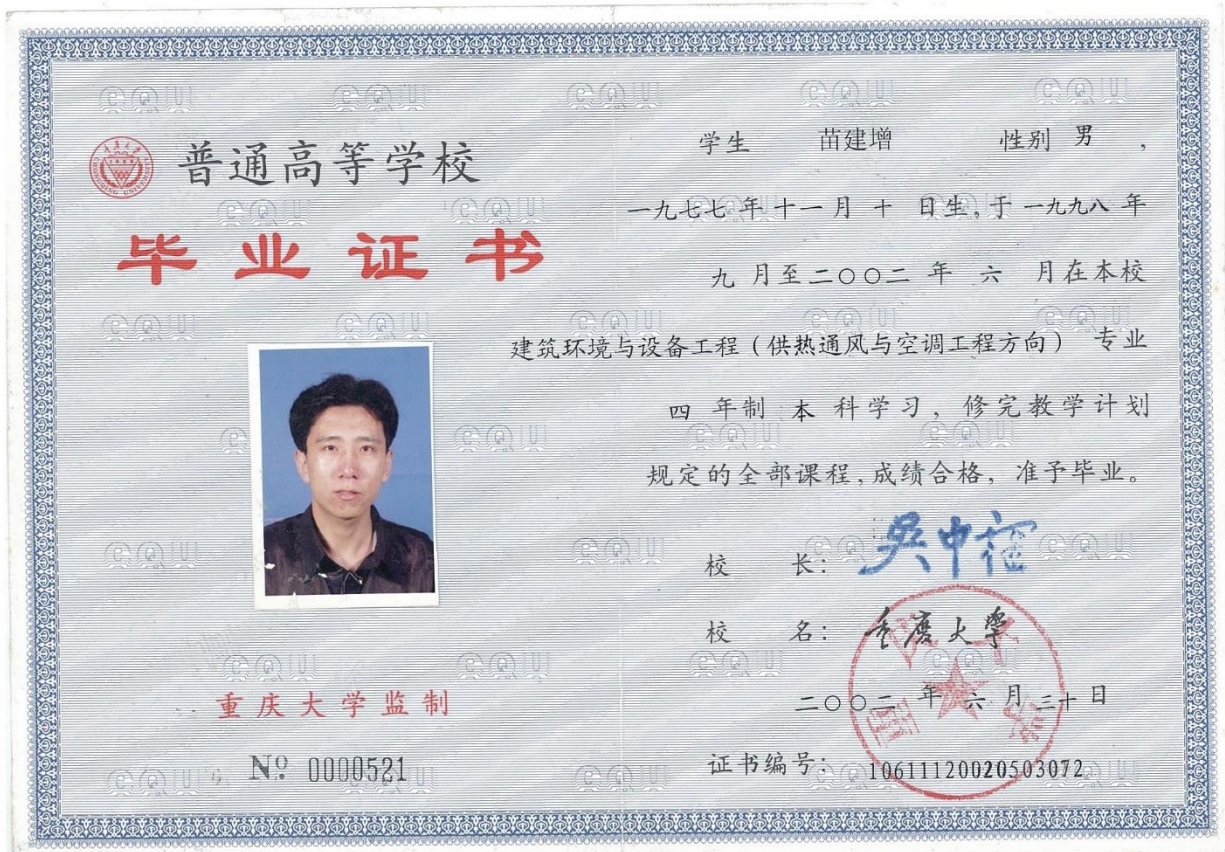 普通高等学校
毕业证书
重庆大学监制
No 0000521
学生 苗建增 性别 男 ,
一九七七年十一月十日生,于一九九八年
九月至二〇〇二年六月在本校
建筑环境与设备工程(供热通风与空调工程方向) 专业
四年制本科学习,修完教学计划
规定的全部课程,成绩合格,准予毕业。
校长:
校名:重庆大学
二〇〇二年六月三十日
证书编号:10611120020503072
CQU